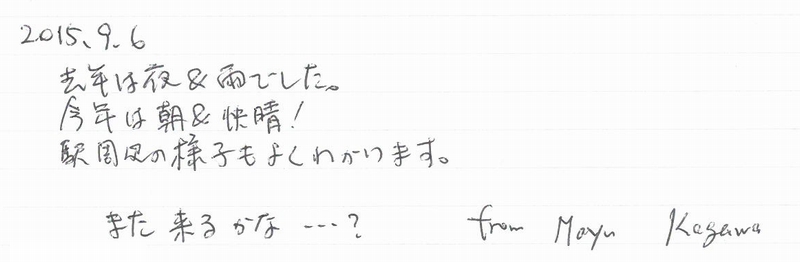 2015.9.6
去年は夜&雨でした。
今年は朝&快晴!
駅周辺の様子もよくわかります。
また来るかな…? from Mayu Kagawa